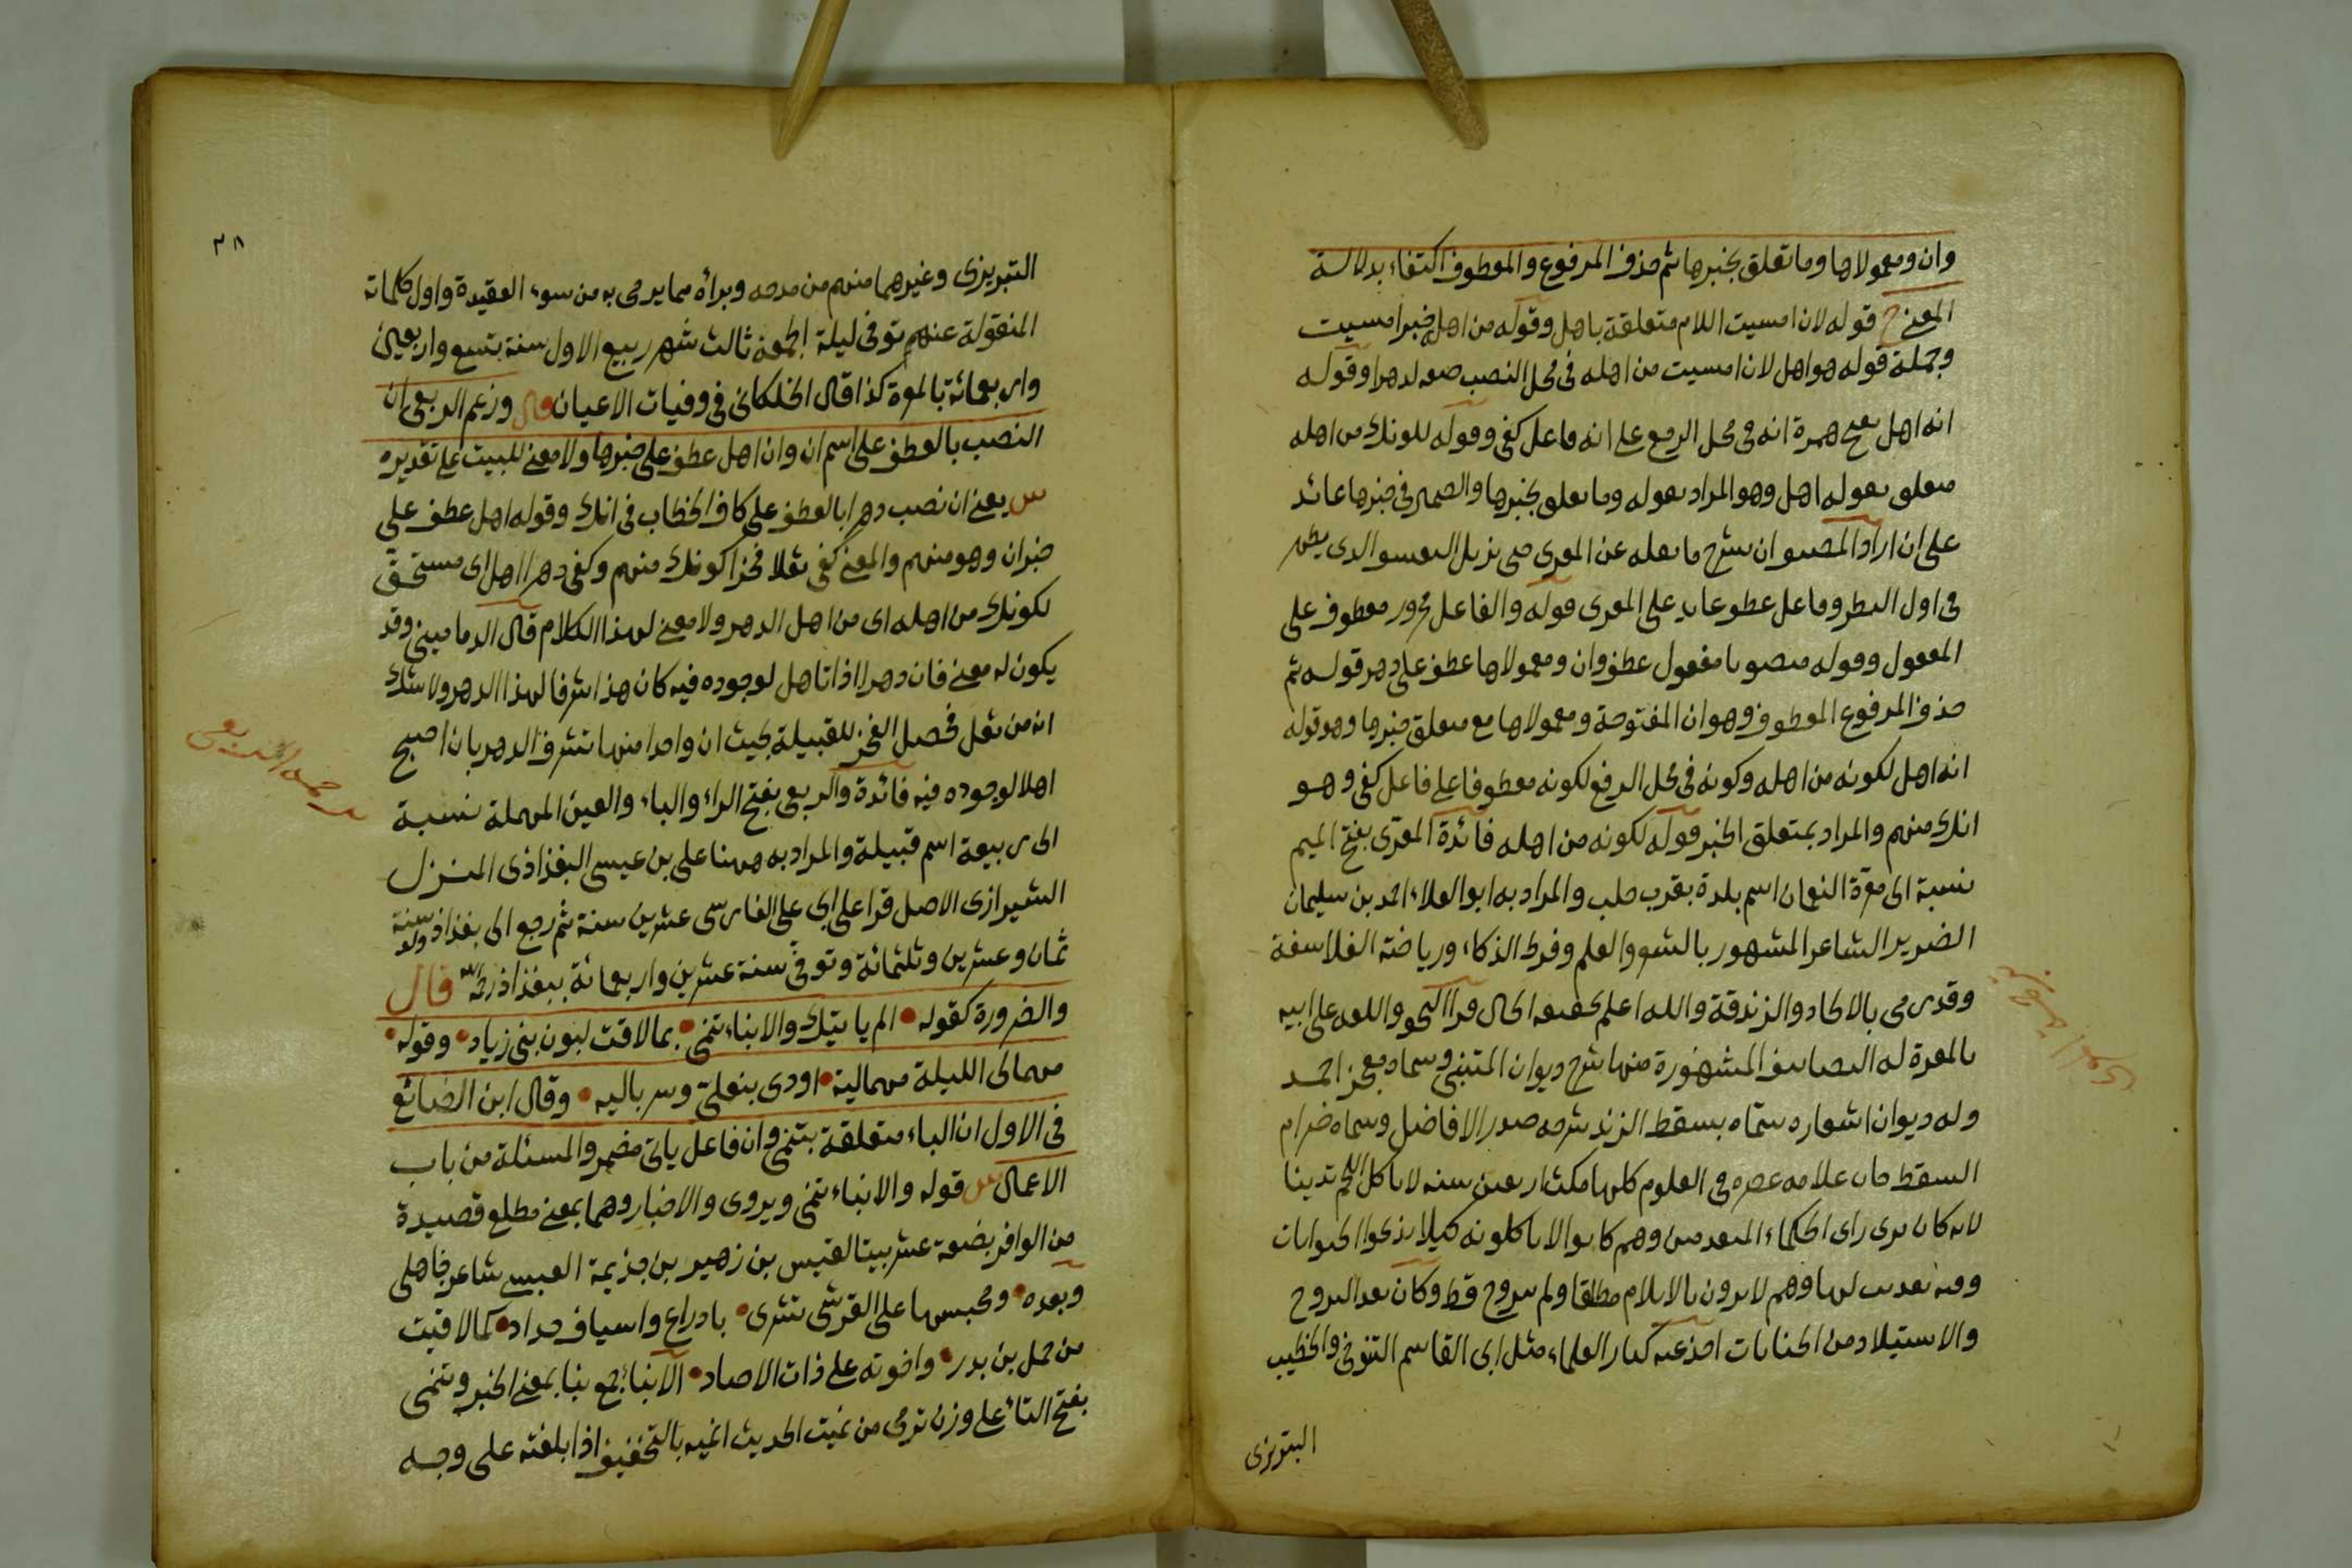 وان ومعمولاها وما تعلق بخبرها ثم حذف المرفوع والمعطوف اكتفاء بدلالة
المعنى قوله لان امسيت اللام متعلقة باهل وقوله من اهله خبر امسيت
وجملة قوله هو اهل لان امسيت من اهله فى محل النصب صفه لدهرا وقوله
انه اهل بفتح همزة انه فى محل الرفع على انه فاعل كفى وقوله لكونك من اهله
متعلق بقوله اهل وهو المراد بقوله وما تعلق بخبرها والضمير فى خبرها عائد
على ان اراد المصنف ان يشرح ما نقله عن المعرى حتى يزيل الذى يظهر
فى اول النظر وفاعل عطف عايد على المعرى قوله والفاعل مجرور معطوف على
المفعول وقوله منصوبا مفعول عطف وان ومعمولاها عطف على دهر قوله ثم
حذف المرفوع المعطوف وهو ان المفتوحة ومعمولاها مع متعلق خبرها وهو قوله
انه اهل لكونه من اهله وكونه فى محل الرفع لكونه معطوفا على فاعل كفى وهو
انك منهم والمراد بمتعلق الخبر قوله لكونه من اهله فائدة المعرّى بفتح الميم
نسبة الى معرّة النعمان اسم بلدة بقرب حلب والمراد به ابو العلاء احمد بن سليمان
الضرير الشاعر المشهور بالشعر والعلم وفرط الذكاء ورياضة الفلاسفة
وقد رمى بالالحاد والزندقة والله اعلم بحقيقة الحال قرأ النحو واللغه على ابيه
بالمعرة له التصانيف المشهورة منها شرح ديوان المتنبى وسماه معجز احمد
وله ديوان اشعاره سمّاه بسقط الزند شرحه صدر الافاضل وسماه ضرام
السقط كان علامه عصره فى العلوم كلها مكث اربعين سنه لا ياكل اللحم تدينا
لانه كان يرى راى الحكماء المتقدمين وهم كانوا لا ياكلونه كيلا يذبحوا الحيوانات
وفيه تعذيب لها وهم لا يرون بالايلام مطلقا ولم يتزوج قط وكان يعد التزوج
والاستيلاد من الجنايات اخذ عنه كبار العلماء مثل ابى القاسم التنوخى والخطيب
التبريزى
٢٨
التبريزى وغيرهما منهم من مدحه وبرأه مما يرمى به من سوء العقيدة واول كلماته
المنقولة عنهم توفى ليلة الجمعة ثالث شهر ربيع الاول سنة تسع واربعين
واربعمائة بالمعرة كذا قال الخلكانى فى وفيات الاعيان قال وزعم الربعى ان
النصب بالعطف على اسم ان وان اهل عطف على خبرها ولا معنى للبيت على تقديره
س يعنى ان نصب دهرا بالعطف على كاف الخطاب فى انك وقوله اهل عطف على
خبر ان وهو منهم والمعنى كفى ثعلا فخرا كونك منهم وكفى دهرا اهل اى مستحق
لكونك من اهله اى من اهل الدهر ولا معنى لهذا الكلام قال الدمامينى وقد
يكون له معنى فان دهرا اذا تاهل لوجوده فيه كان هذا شرفا لهذا الدهر ولا شك
انه من ثعل فحصل الفخر للقبيلة بحيث ان واحدا منها تشرف الدهر بان اصبح
اهلا لوجوده فيه فائدة والربعى بفتح الراء والباء والعين المهملة نسبة
الى ربيعة اسم قبيلة والمراد به ههنا على بن عيسى البغداذى المنزل
الشيرازى الاصل قرا على ابى على الفارسى عشرين سنة ثم رجع الى بغداذ ولد سنة
ثمان وعشرين وثلثمائة وتوفى سنة عشرين واربعمائة ببغداذ رحمه الله قال
والضرورة كقوله • الم ياتيك والانباء تنمى • بما لاقت لبون بنى زياد • وقوله •
مهما لى الليلة مهما ليه • اودى بنعلىّ وسرباليه • وقال ابن الضائع
فى الاول ان الباء متعلقة بتنمى وان فاعل ياتى مضمر والمسئلة من باب
الاعمال س قوله والانباء تنمى ويروى والاخبار وهما بمعنى مطلع قصيدة
من الوافر بضعة عشر بيتا لقيس بن زهير بن جذيمة العبسى شاعر جاهلى
وبعده • ومحبسها على القرشى تشرى • بادراع واسياف حداد • كما لاقيت
من حمل بن بدر • واخوته على ذات الاصاد • الانباء جمع نبا بمعنى الخبر وتنمى
بفتح التاء على وزن ترمى من نميت الحديث انميه بالتخفيف اذا بلغته على وجه